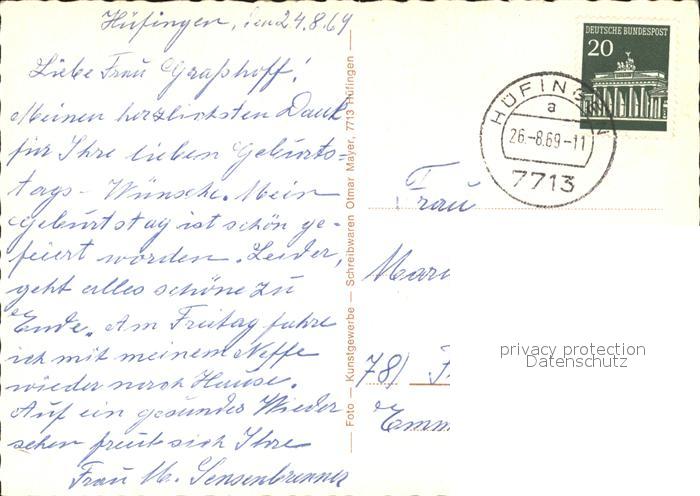 Hüfingen, den 24.8.69
Liebe Frau Graßhoff!
Meinen herzlichsten Dank
für Ihre lieben Geburts=
tags-Wünsche. Mein
Geburtstag ist schön ge-
feiert worden. Leider,
geht alles schöne zu
Ende. Am Freitag fahre
ich mit meinem Neffe
wieder nach Hause.
Auf ein gesundes Wieder
sehen freut sich Ihre
Frau M. Sensenbrenner
Foto — Kunstgewerbe — Schreibwaren Otmar Mayer, 7713 Hüfingen
DEUTSCHE BUNDESPOST
20
HÜFINGEN
a
26.-8.69-11
7713
Frau
Mari
78)
Emm
privacy protection
Datenschutz